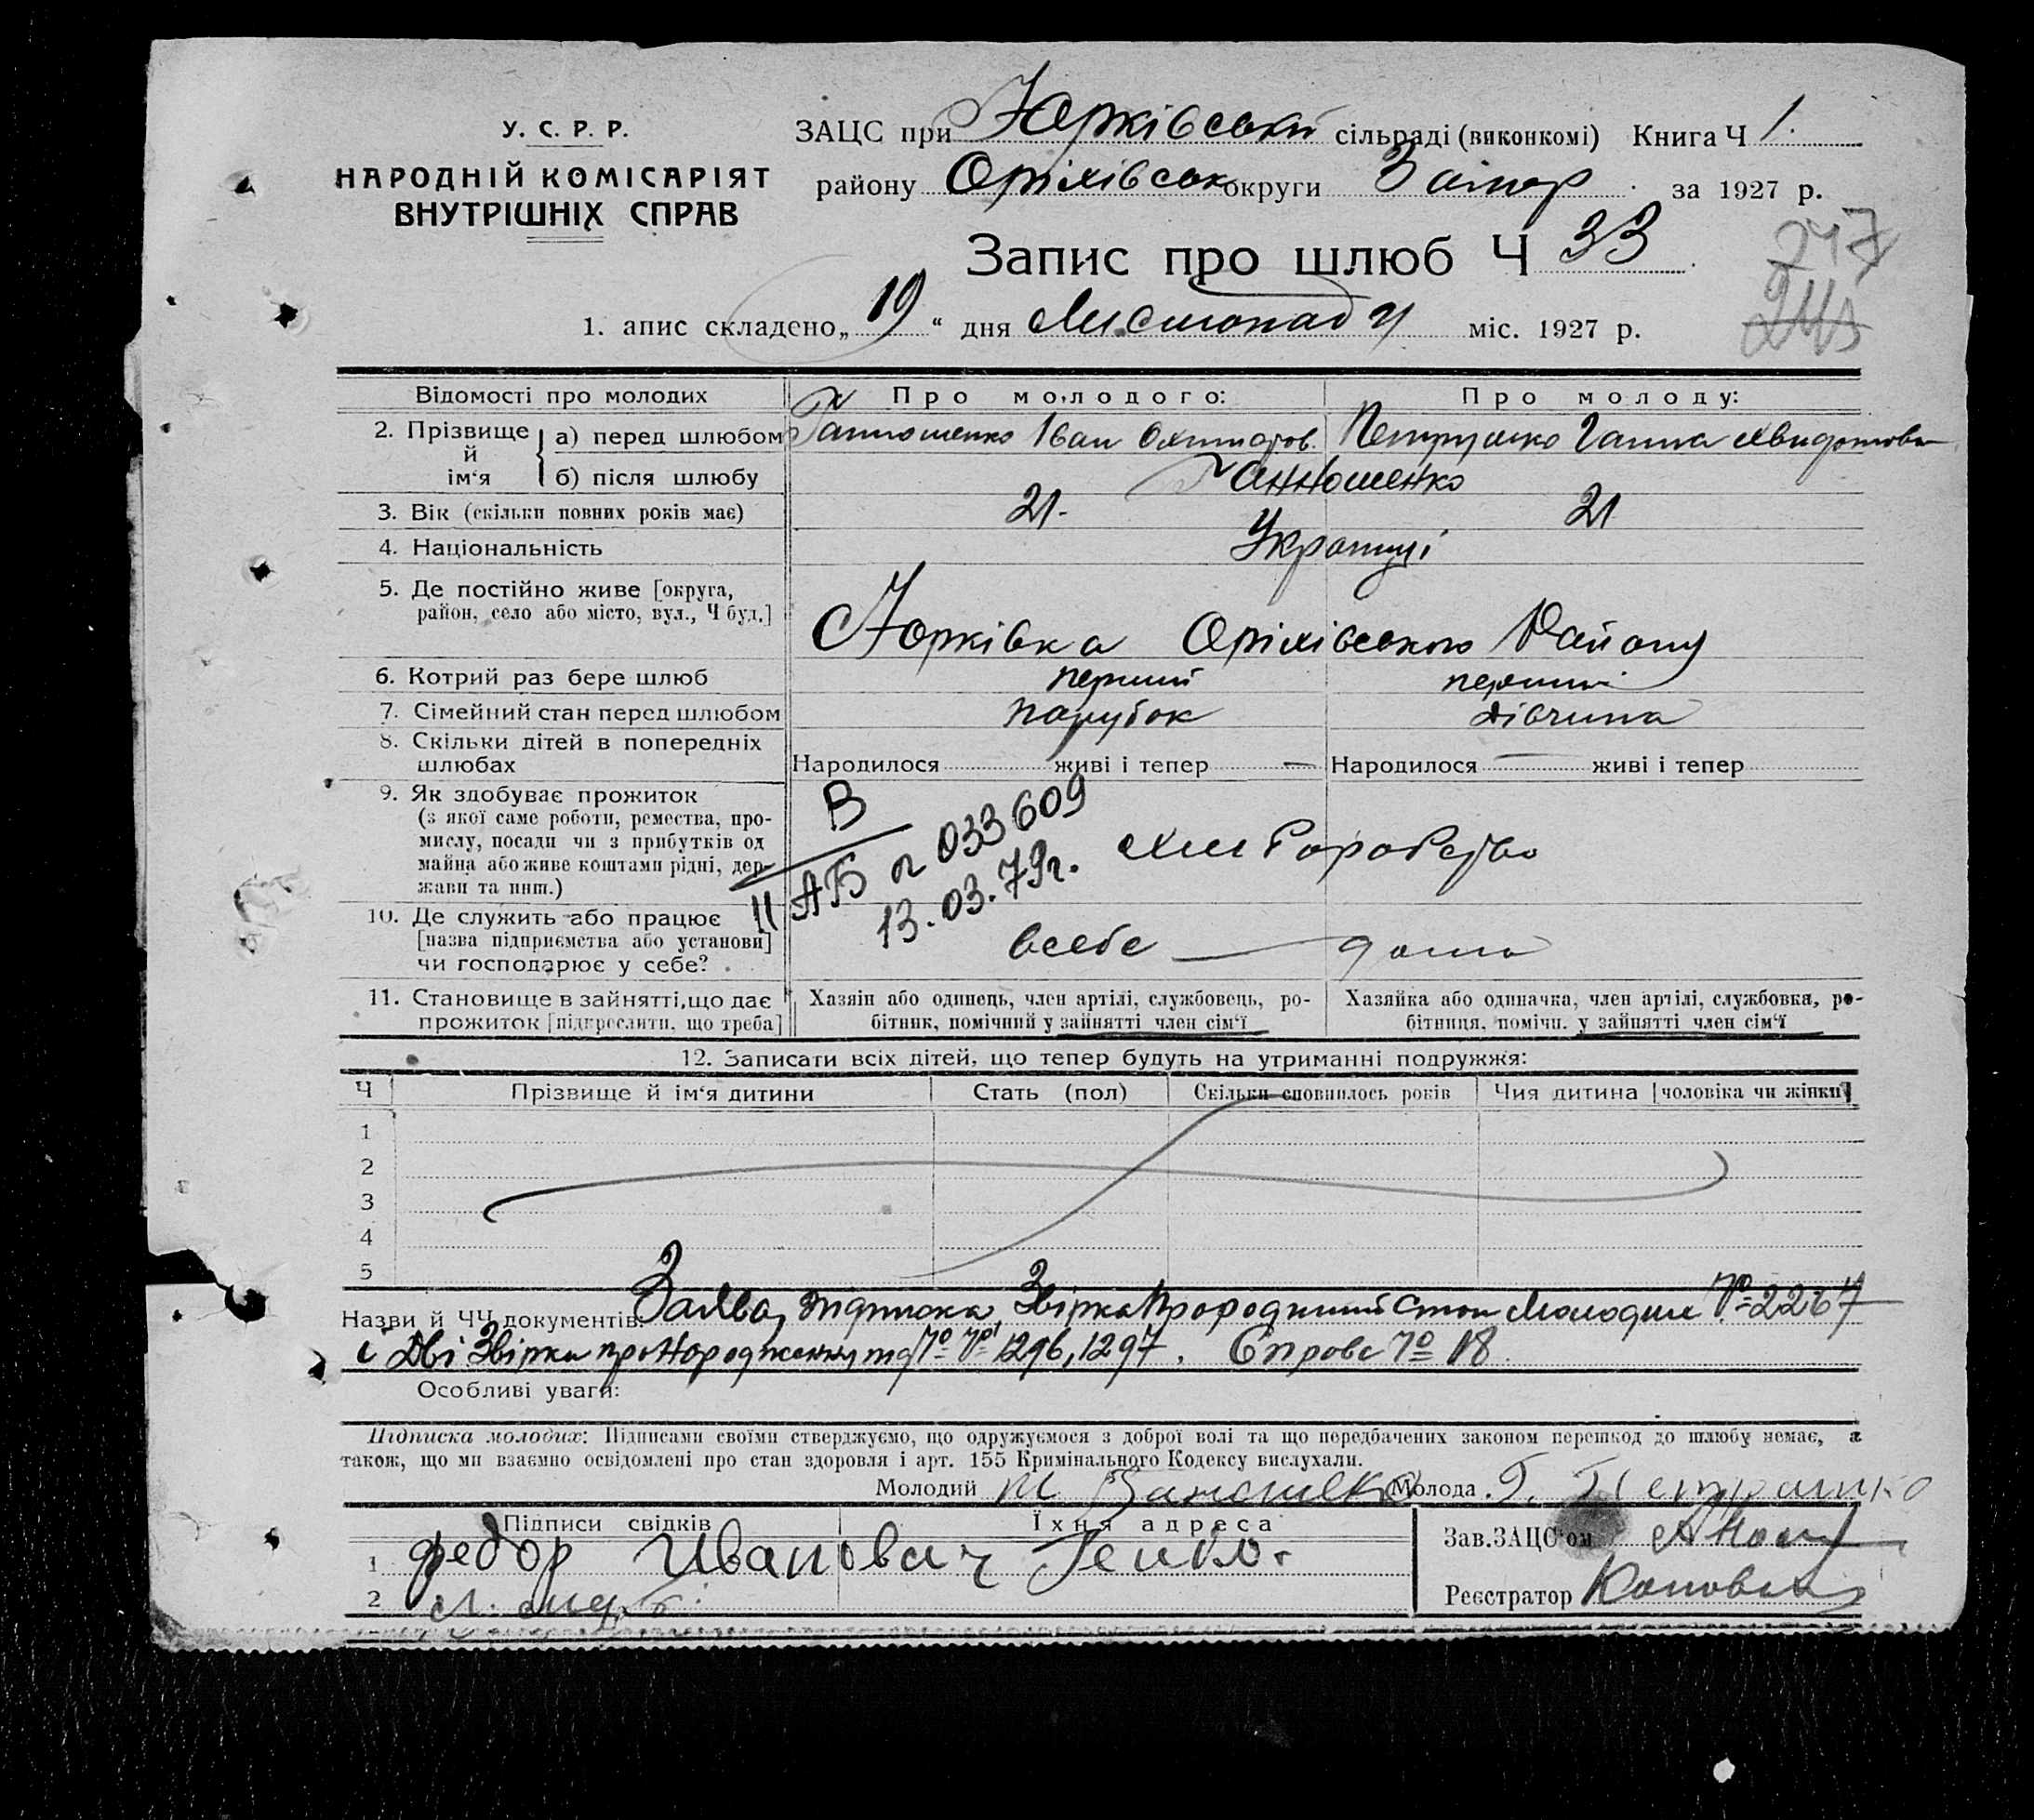 У. С. Р. Р.
НАРОДНІЙ КОМІСАРІЯТ
ВНУТРІШНІХ СПРАВ
ЗАЦС при Юрківській сільраді (виконкомі) Книга Ч 1.
району Оріхівськ округи Запор. за 1927 р.
Запис про шлюб Ч 33
247
1. апис складено „ 19 “ дня Листопаду міс. 1927 р.
Відомості про молодих Про молодого: Про молоду:
2. Прізвище й ім‘я а) перед шлюбом Ганношенко Іван Петрушко Ганна
б) після шлюбу Ганношенко
3. Вік (скільки повних років має) 21. 21
4. Національність Українці
5. Де постійно живе [округа,
район, село або місто, вул., Ч буд.]
Юрківка Оріхівського Району
6. Котрий раз бере шлюб перший перший
7. Сімейний стан перед шлюбом парубок дівчина
8. Скільки дітей в попередніх
шлюбах Народилося живі і тепер — Народилося — живі і тепер
9. Як здобуває прожиток
(з якої саме роботи, ремества, про-
мислу, посади чи з прибутків од
майна або живе коштами рідні, дер-
жави та инш.)
Хліборобство
В
II АБ № 033609
13.03.79г.
10. Де служить або працює
[назва підприємства або установи]
чи господарює у себе?
всебе — дома
11. Становище в зайнятті, що дає
прожиток [підкреслити, що треба]
Хазяін або одинець, член артілі, службовець, ро-
бітник, помічний у зайнятті член сім‘ї
Хазяйка або одиначка, член артілі, службовка, ро-
бітниця, помічн. у зайнятті член сім‘ї
12. Записати всіх дітей, що тепер будуть на утриманні подружжя:
Ч Прізвище й ім‘я дитини Стать (пол) Скільки сповнилось років Чия дитина [чоловіка чи жінки]
1
2
3
4
5
Назви й ЧЧ документів: Заява, Підписка, Звірка про родинний стан Молодих № 2267
і Дві Звірки про Народження №№ 1296, 1297. Справа № 18
Особливі уваги:
Підписка молодих: Підписами своїми стверджуємо, що одружуємося з доброї волі та що передбачених законом перешкод до шлюбу немає, а
також, що ми взаємно освідомлені про стан здоровля і арт. 155 Кримінального Кодексу вислухали.
Молодий Молода Г. Петрушко
Підписи свідків Їхня адреса
1 Федор Иванович
2
Зав. ЗАЦС‘ом
Реєстратор